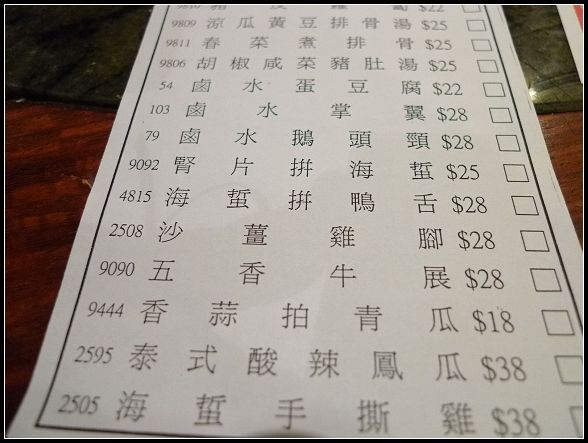 9809 涼瓜黃豆排骨湯 $25
9811 春菜煮排骨 $25
9806 胡椒咸菜豬肚湯 $25
54 鹵水蛋豆腐 $22
103 鹵水掌翼 $28
79 鹵水鵝頭頸 $28
9092 腎片拼海蜇 $25
4815 海蜇拼鴨舌 $28
2508 沙薑雞腳 $28
9090 五香牛展 $28
9444 香蒜拍青瓜 $18
2595 泰式酸辣鳳瓜 $38
2505 海蜇手撕雞 $38